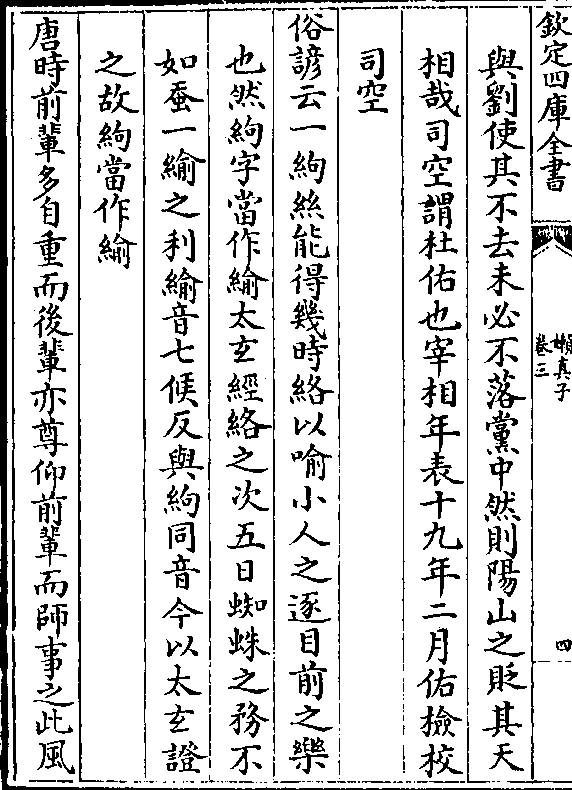 欽定四庫全書
嬾真子
卷三
四
與劉使其不去未必不落黨中然則陽山之貶其天
相哉司空謂杜佑也宰相年表十九年二月佑檢校
司空
俗諺云一絇絲能得幾時絡以喻小人之逐目前之樂
也然絇字當作緰太玄經絡之次五日蜘蛛之務不
如蚕一緰之利緰音七候反與絇同音今以太玄證
之故絇當作緰
唐時前輩多自重而後輩亦尊仰前輩而師事之此風